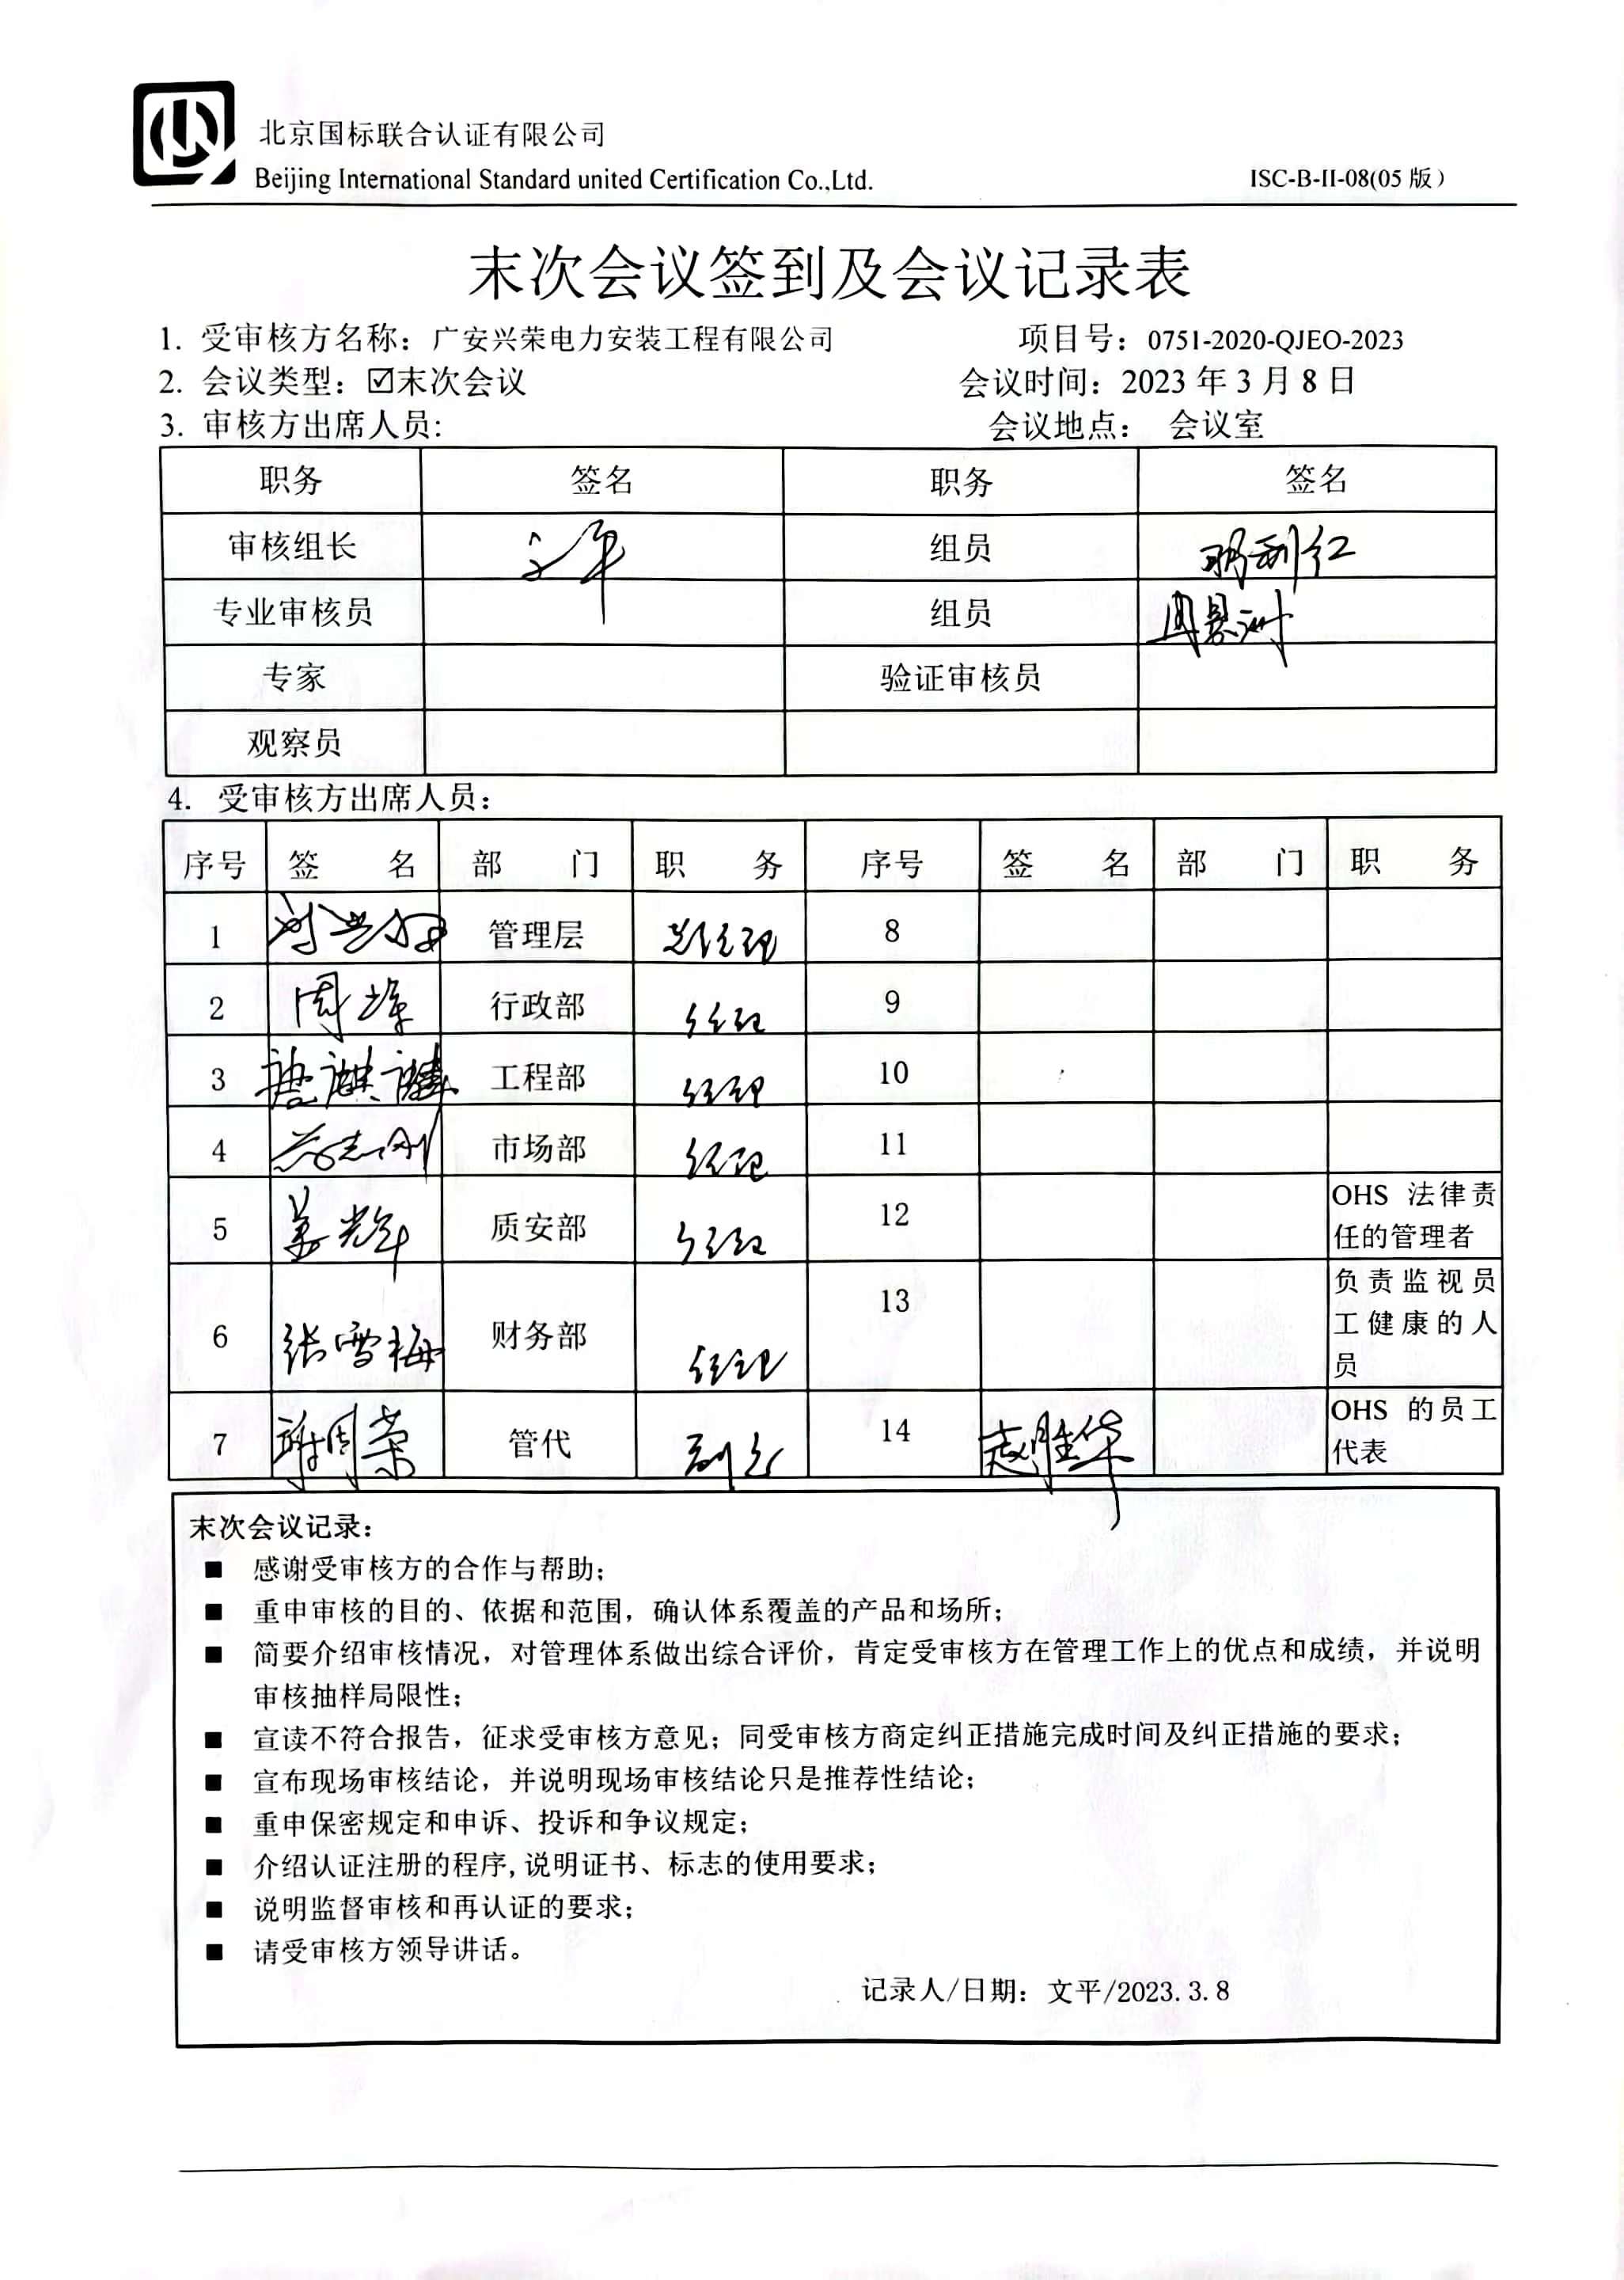 北京国标联合认证有限公司
Beijing International Standard united Certification Co.,Ltd.
ISC-B-II-08(05 版)
末次会议签到及会议记录表
1. 受审核方名称：广安兴荣电力安装工程有限公司 项目号：0751-2020-QJEO-2023
2. 会议类型：☑末次会议 会议时间：2023 年 3 月 8 日
3. 审核方出席人员: 会议地点： 会议室
职务 签名 职务 签名
审核组长 文平 组员
专业审核员 组员
专家 验证审核员
观察员
4. 受审核方出席人员：
序号 签 名 部 门 职 务 序号 签 名 部 门 职 务
1 管理层 总经理 8
2 行政部 经理 9
3 唐麒麟 工程部 经理 10
4 市场部 经理 11
5 姜光辉 质安部 经理 12 OHS 法律责
任的管理者
6 张雪梅 财务部 经理 13 负责监视员
工健康的人
员
7 谢周荣 管代 副总 14 赵胜华 OHS 的员工
代表
末次会议记录：
■ 感谢受审核方的合作与帮助；
■ 重申审核的目的、依据和范围，确认体系覆盖的产品和场所；
■ 简要介绍审核情况，对管理体系做出综合评价，肯定受审核方在管理工作上的优点和成绩，并说明
审核抽样局限性；
■ 宣读不符合报告，征求受审核方意见；同受审核方商定纠正措施完成时间及纠正措施的要求；
■ 宣布现场审核结论，并说明现场审核结论只是推荐性结论；
■ 重申保密规定和申诉、投诉和争议规定；
■ 介绍认证注册的程序,说明证书、标志的使用要求；
■ 说明监督审核和再认证的要求；
■ 请受审核方领导讲话。
记录人/日期：文平/2023.3.8